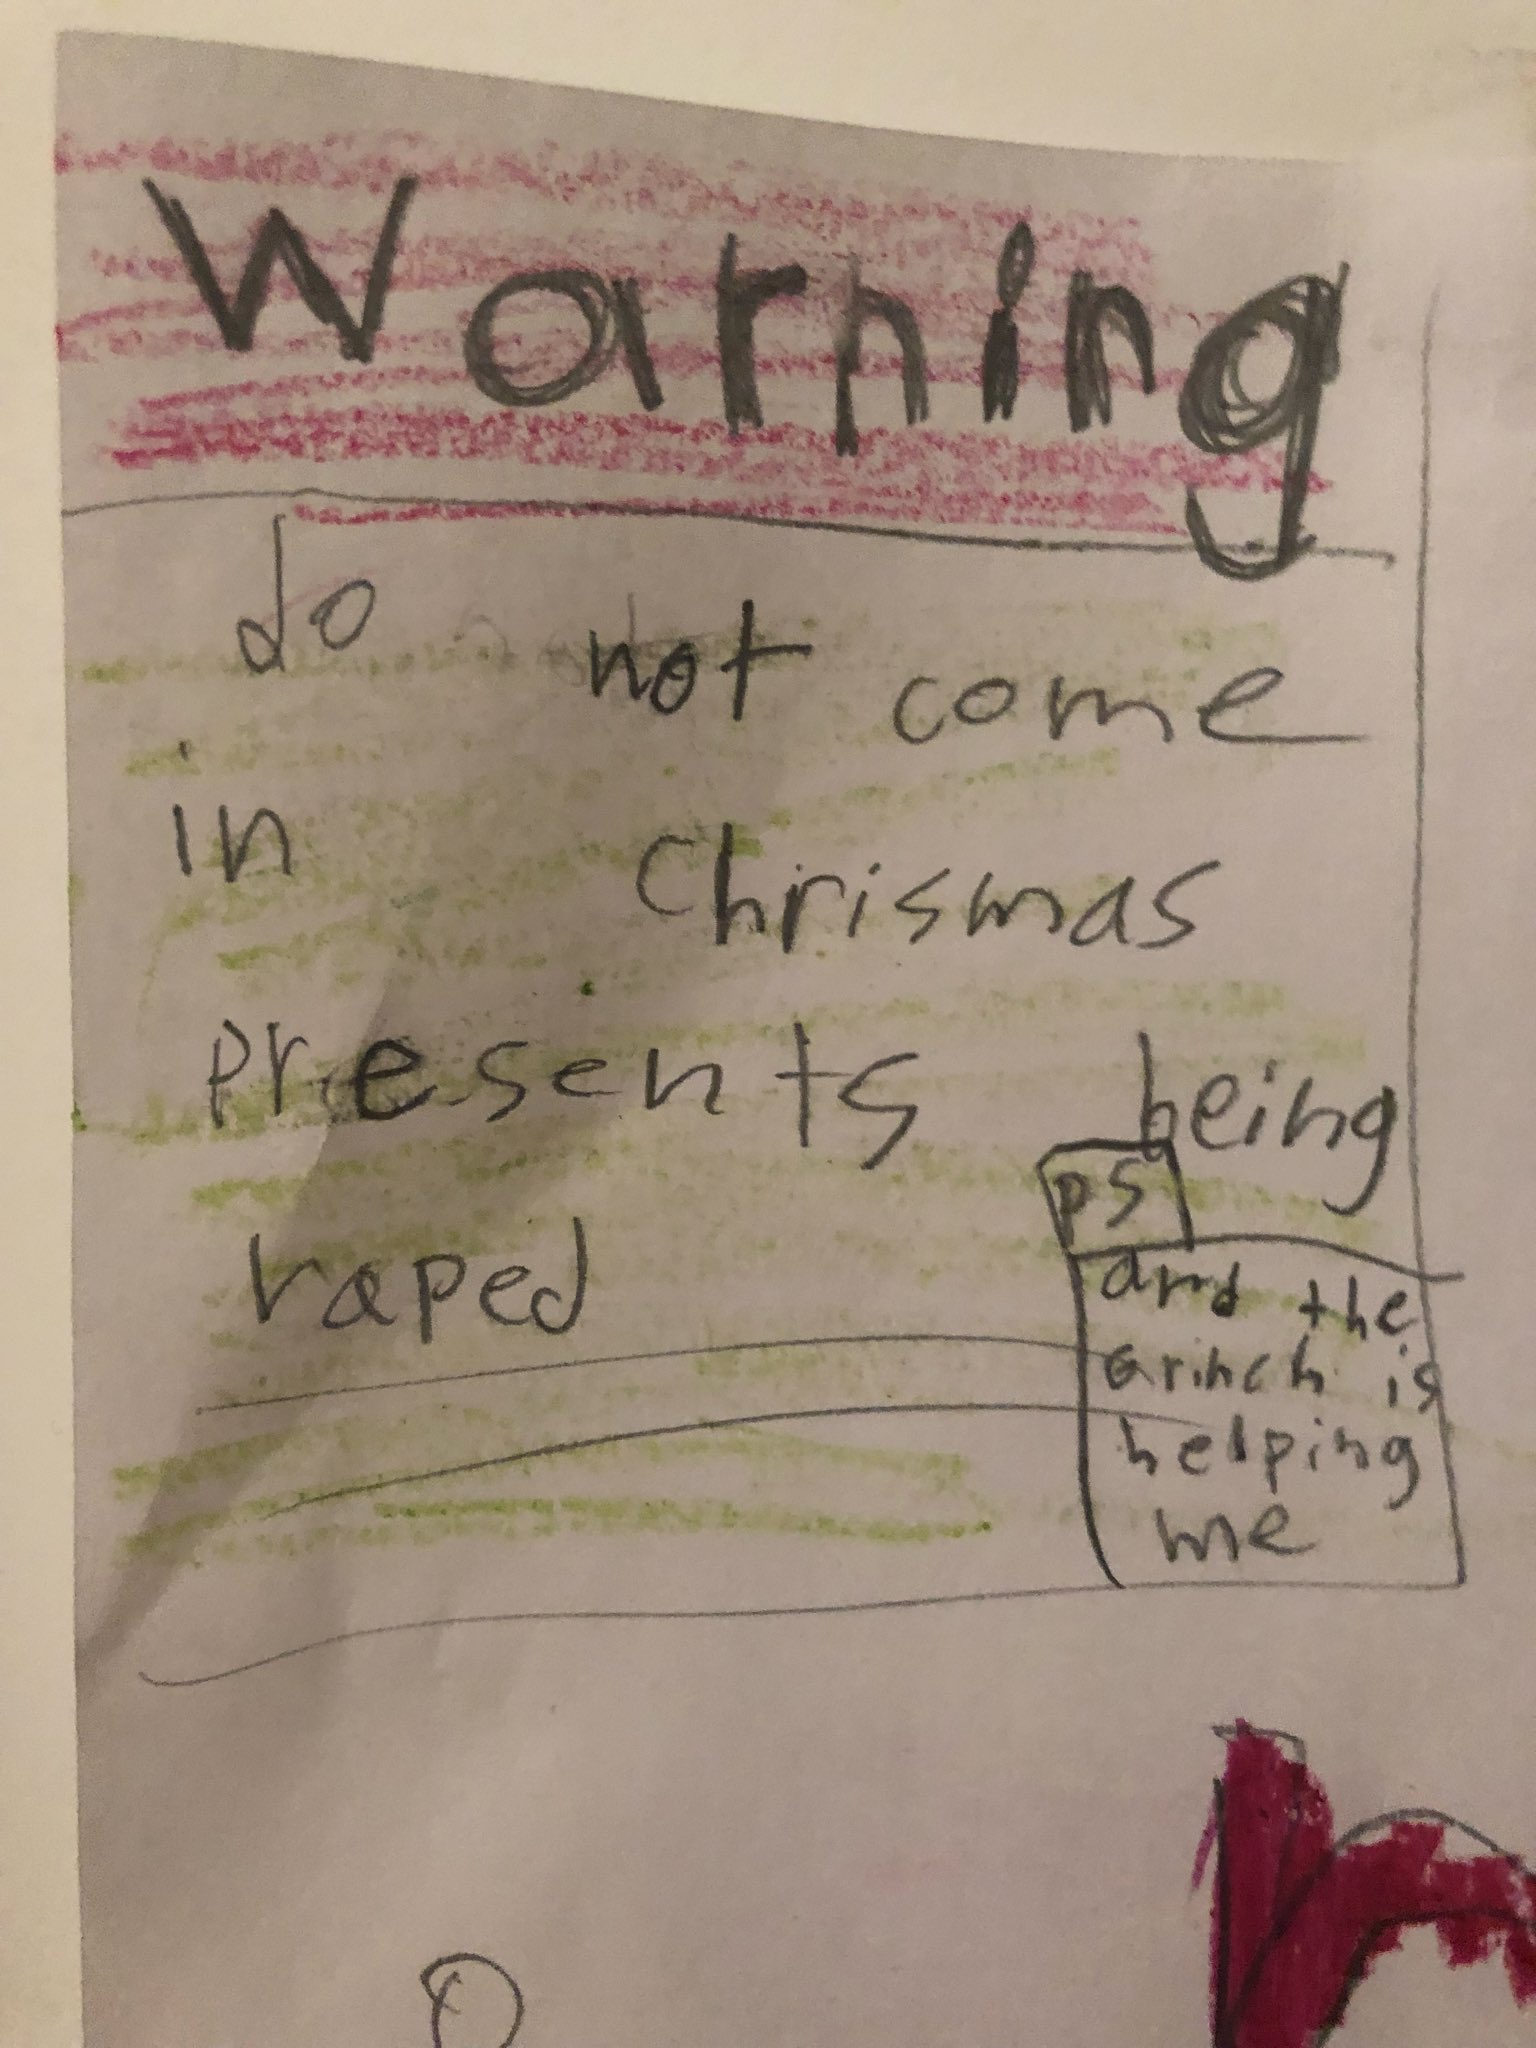 Warning
do not come
in Chrismas
presents being
raped
ps
and the
Grinch is
helping
me